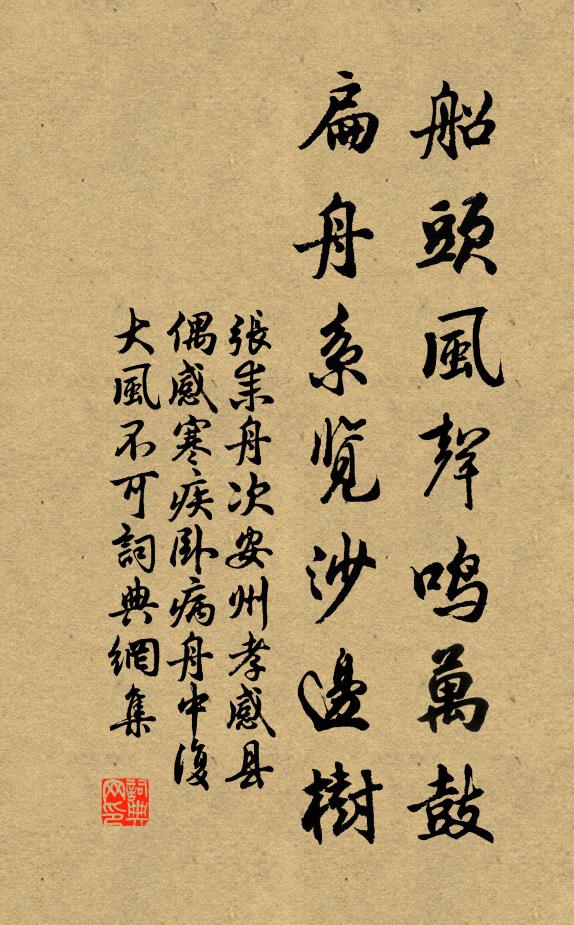 船頭風聲鳴萬鼓
扁舟系览沙邊樹
張耒舟次安州孝感县
偶感寒疾卧病舟中復
大風不可詞典網集
詞典网印